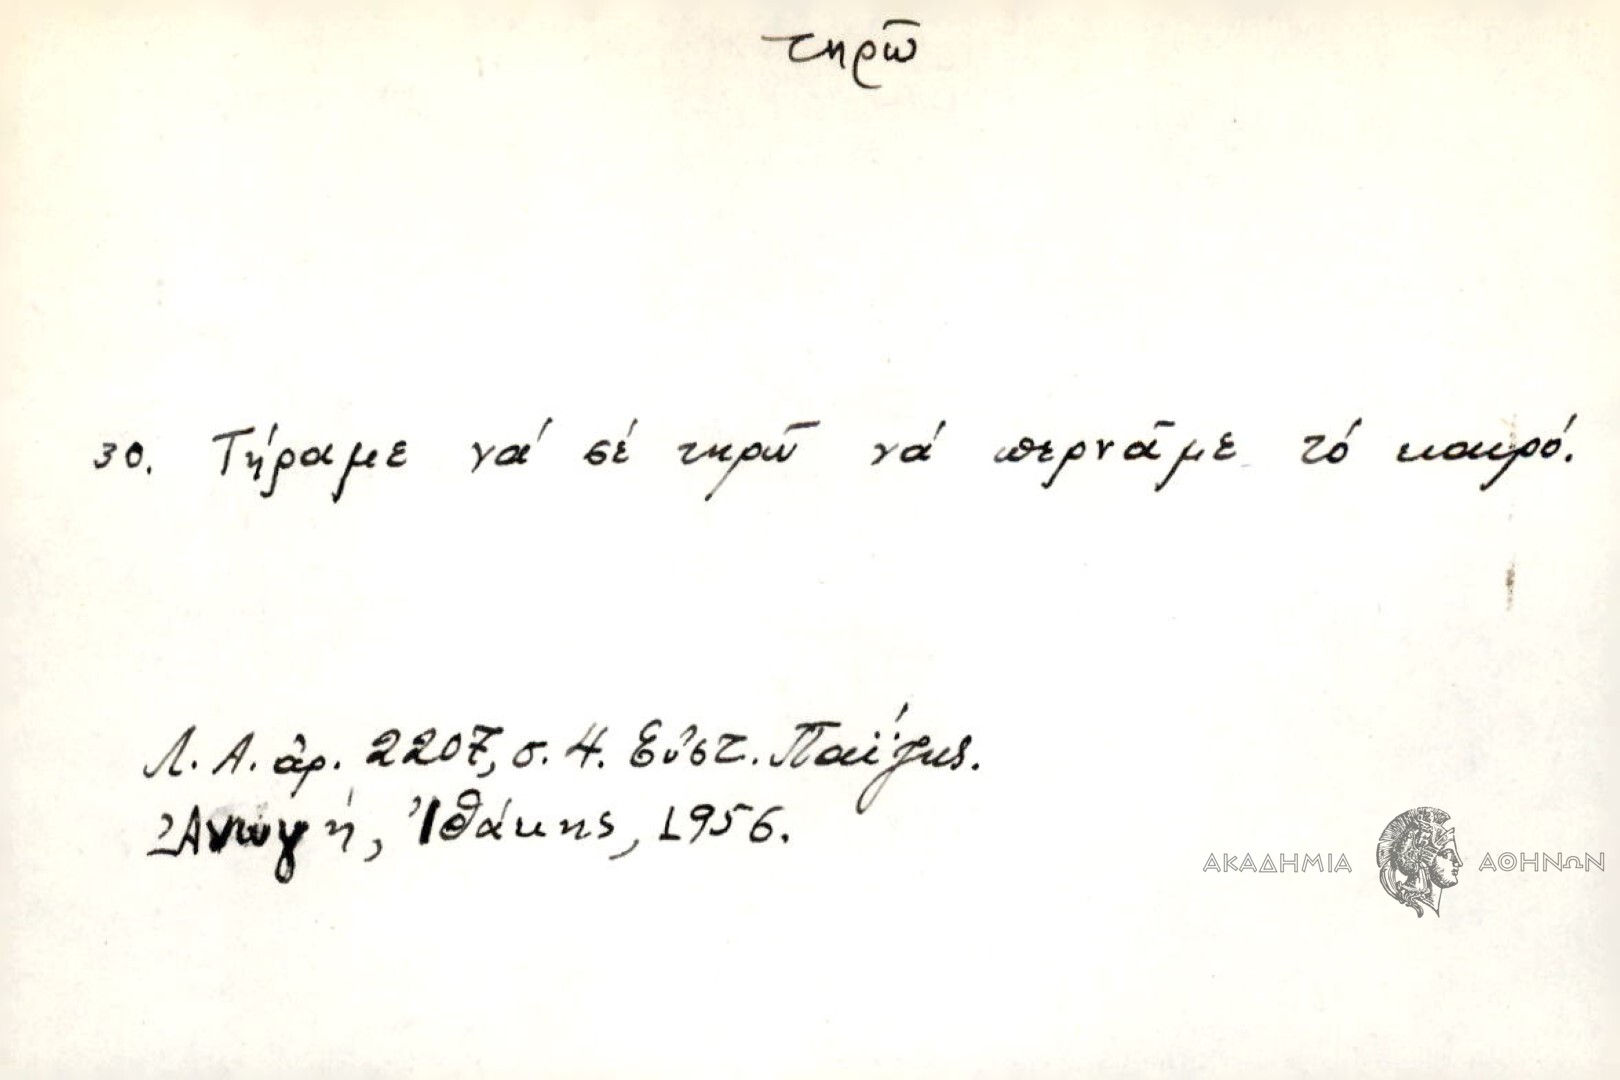 τηρῶ
30. Τήραμε νά σέ τηρῶ νά περνᾶμε τό καιρό.
Λ. Α. ἀρ. 2207, σ. 4. Εὐστ. Παΐζης.
Ἀνωγή, Ἰθάκης, 1956.
ΑΚΑΔΗΜΙΑ ΑΘΗΝΩΝ